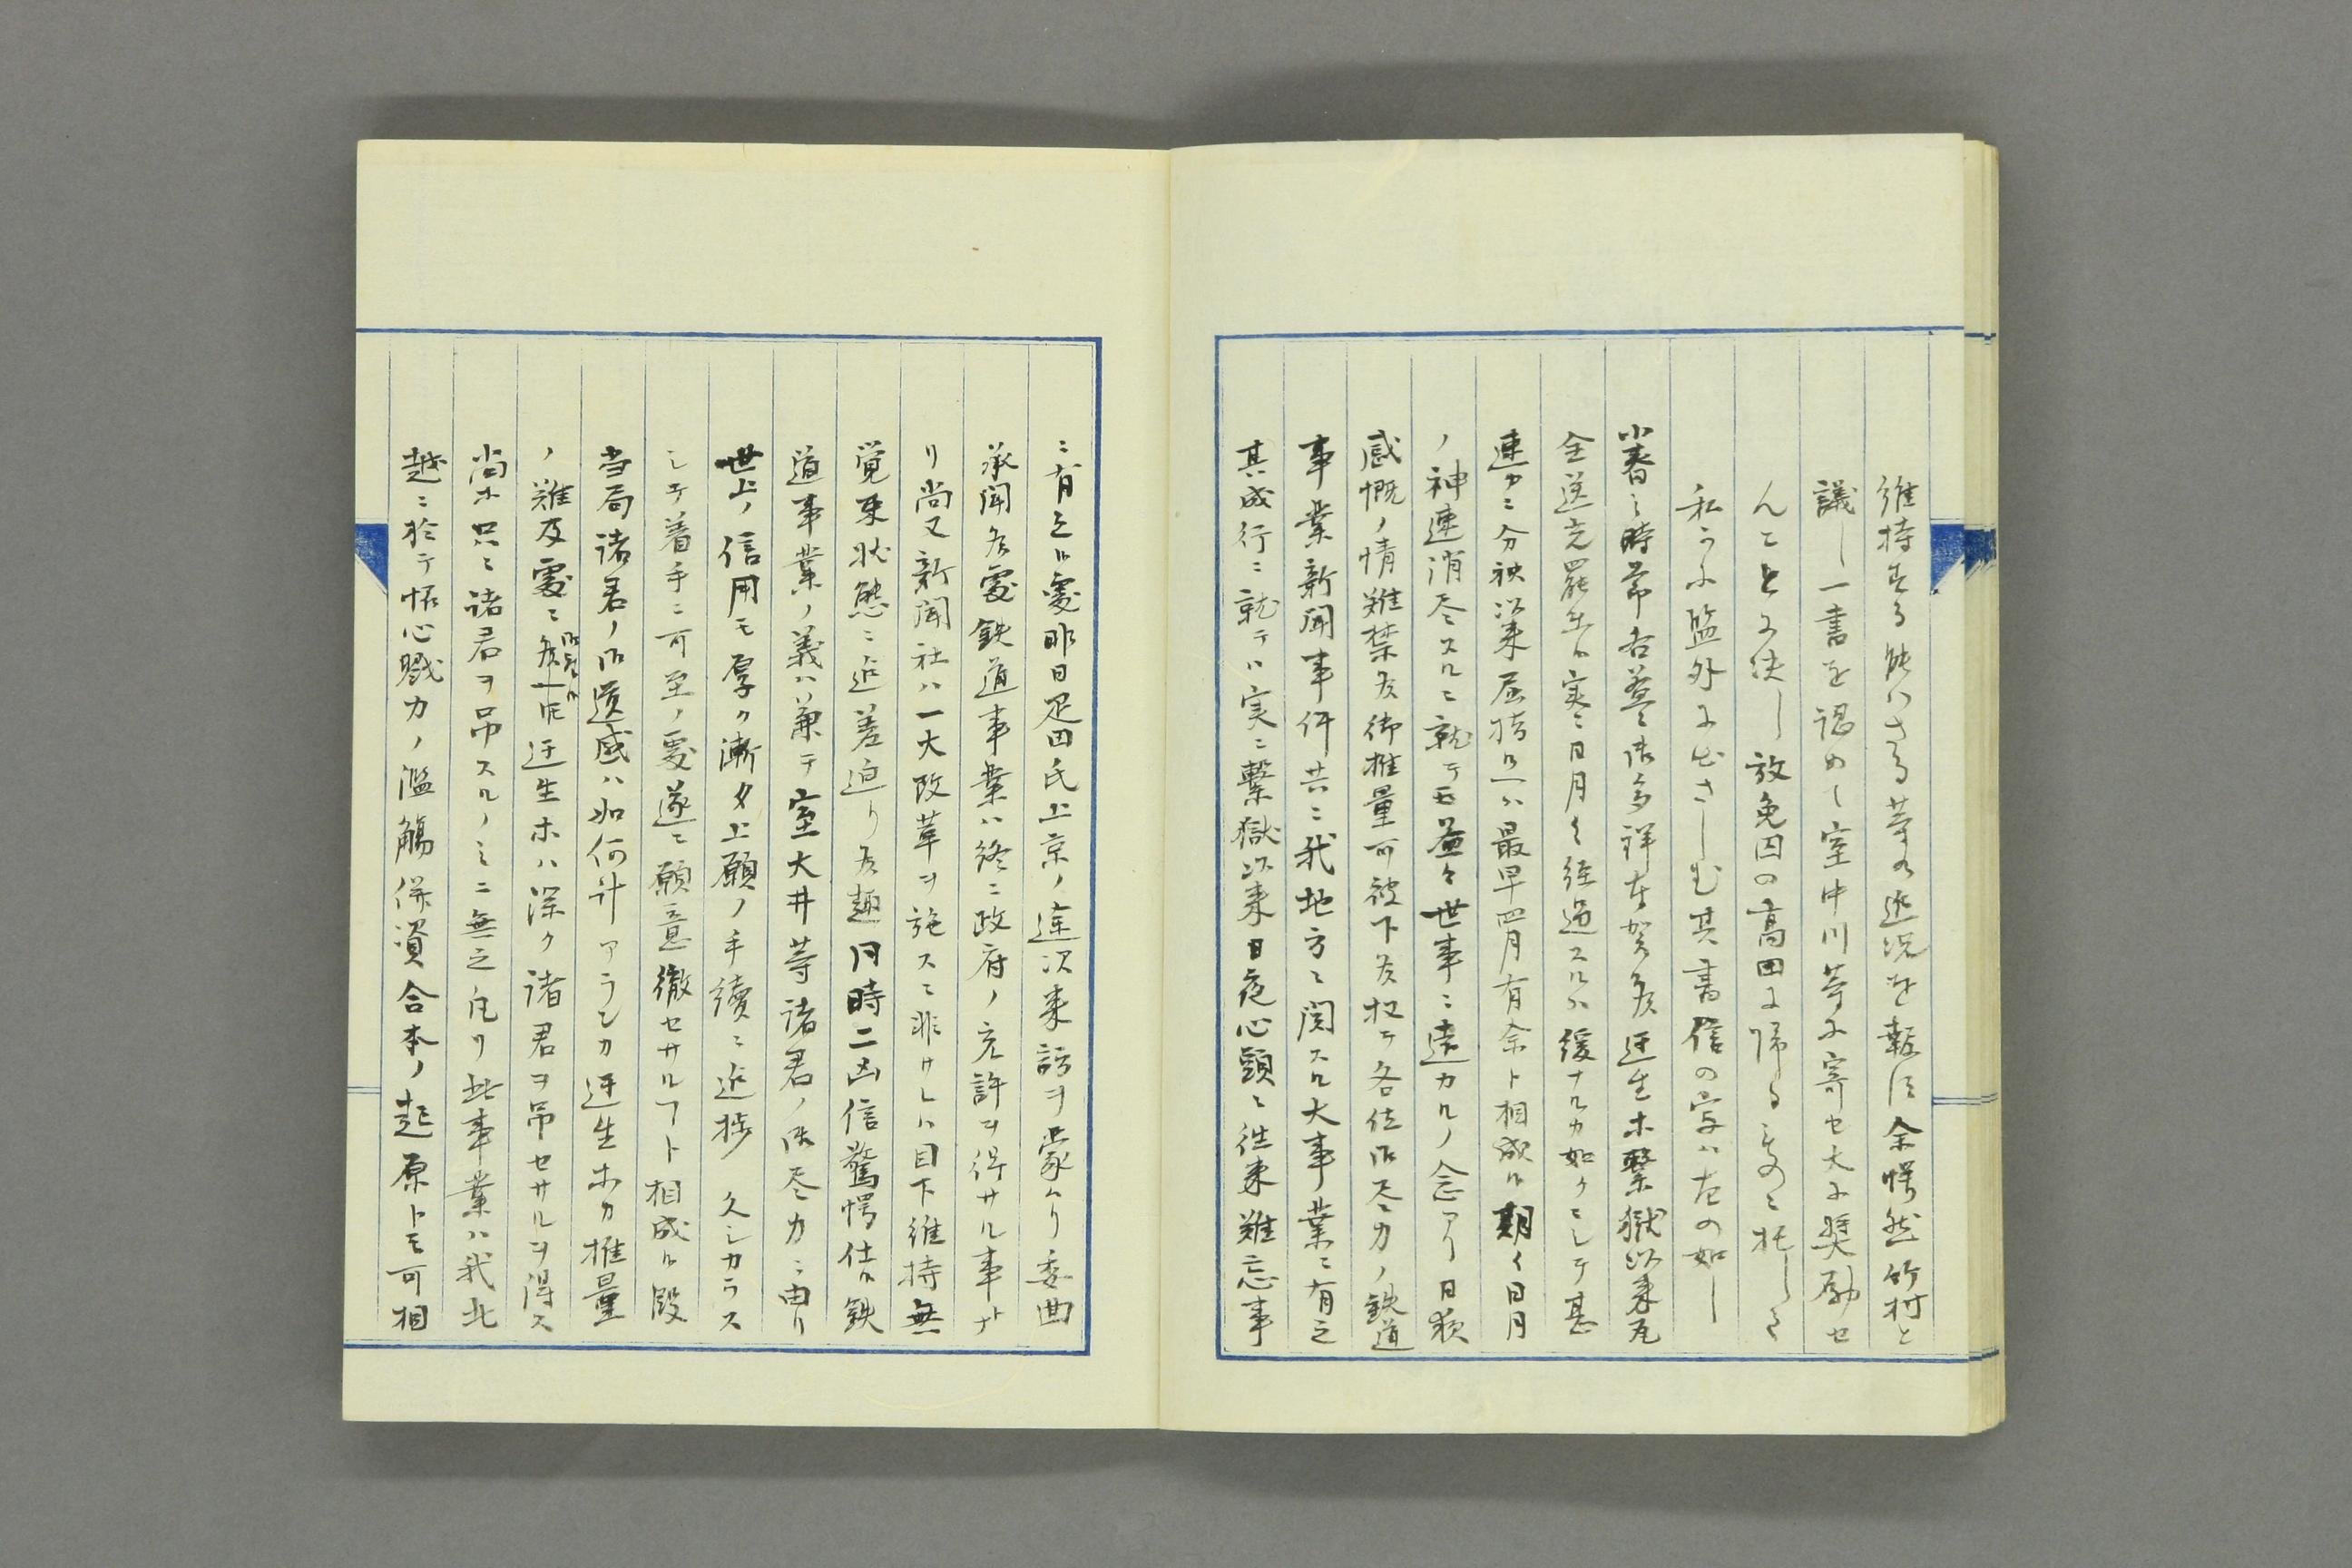 維持する能ハさる等の近況を報信余愕然竹村と
議し一書を認めて室中川等に寄せ大に奨励せ
んことに決し放免囚の高田に帰るものに托して
私かに監外に出さしむ其書信の写ハ左の如し
小春之時節各益御多祥奉賀候迂生ホ繋獄以来
全送光罷在候実ニ日月ノ経過スルハ緩ナルカ如クニシテ甚
速カニ分袂以来屈指スレハ最早四月有余ト相成ル期ク日月
ノ神速消尽スルニ就テモ益々世事ニ遠カルノ念アリ日夜
感慨ノ情難禁候御推量可被下候扨テ各位御尽力ノ鉄道
事業新聞事件共ニ我地方ニ関スル大事業ニ有之
其成行ニ就テハ実ニ繋獄以来日夜心頭ニ往来難忘事
ニ有之候処昨日疋田氏上京ノ途次来訪ヲ蒙ムリ委曲
承聞候処鉄道事業ハ終ニ政府ノ允許ヲ得サル事ト
リ尚又新聞社ハ一大改革ヲ施スニ非サレハ目下維持無
覚束状態ニ近差迫リ候趣同時二凶信驚愕仕候鉄
道事業ノ義ハ兼テ室大井等諸君ノ御尽力ニ由リ
世上ノ信用モ厚ク漸ク上願ノ手続ニ近捗久シカラス
シテ着手ニ可至ノ処遂ニ願意徹セサルコト相成候段
当局諸君ノ御遺感ハ如何計アランカ迂生ホカ推量
ノ難及処ニ御座候迂生ホハ深ク諸君ヲ吊セサルヲ得ス
尚ホ只ニ諸君ヲ吊スルノミニ無之凡ソ此事業ハ我北
越ニ於テ恢心戮力ノ濫觴併資合本ノ起原トモ可相